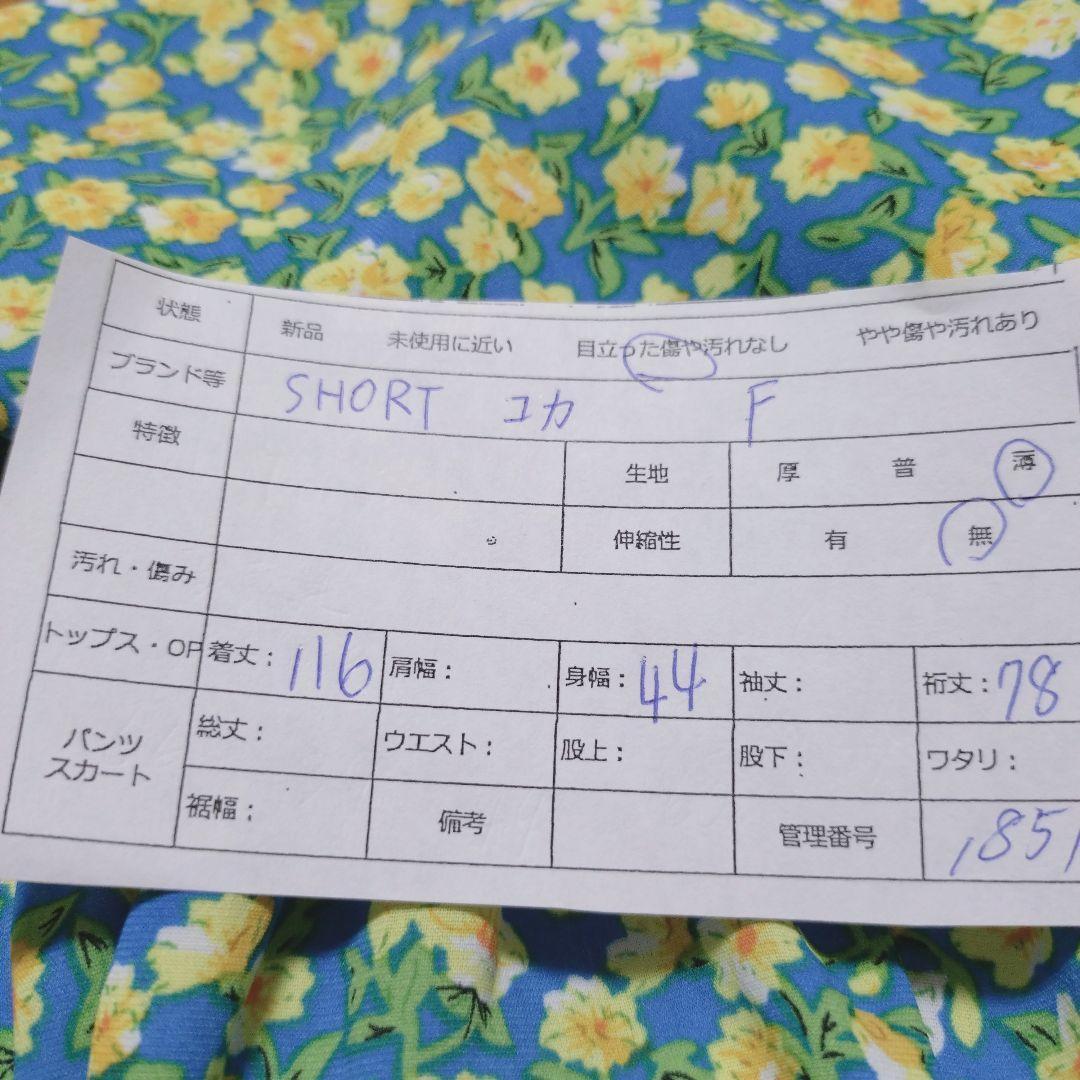 状態 新品 未使用に近い 目立った傷や汚れなし やや傷や汚れあり
ブランド等 SHORT ユカ F
特徴 生地 厚 普 薄
伸縮性 有 無
汚れ・傷み
トップス・OP 着丈: 116 肩幅: 身幅: 44 袖丈: 裄丈: 78
パンツ スカート 総丈: ウエスト: 股上: 股下: ワタリ:
裾幅: 備考 管理番号 1851